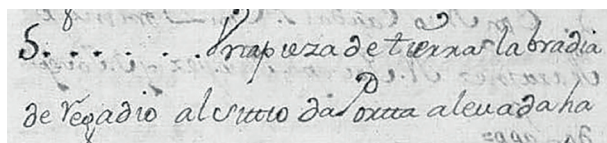 S. . . . . . . Vnapieza de tierra labradia
de regadio al sittio da Portta aleuada ha